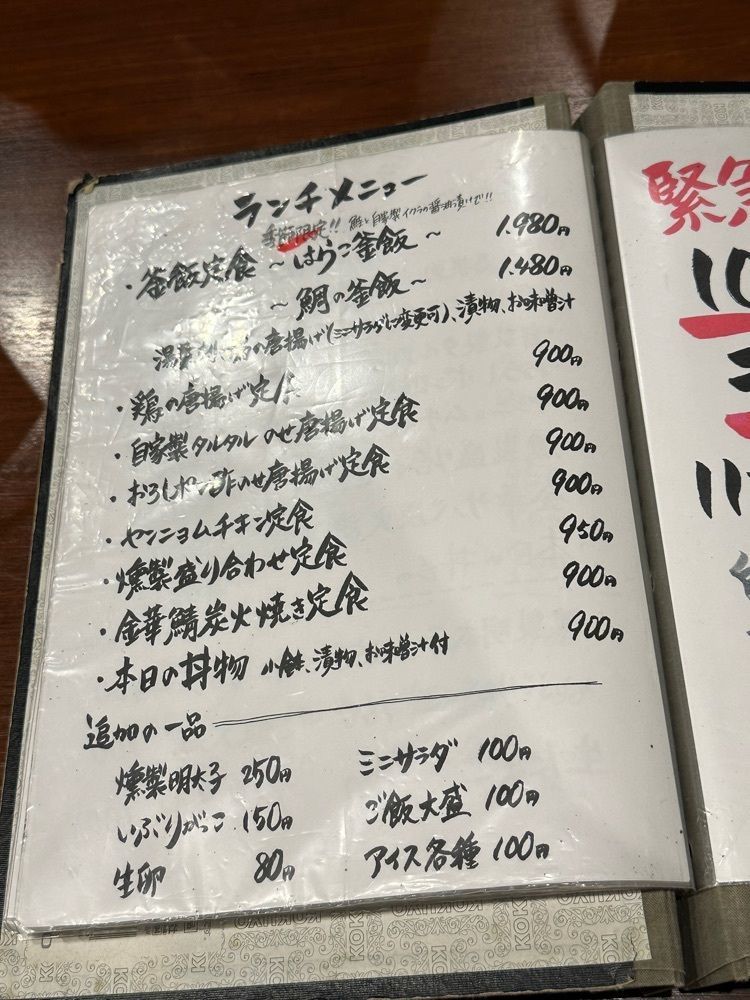 ランチメニュー
季節限定!! 鮭と自家製イクラの醤油漬けで!!
・釜飯定食 〜はらこ釜飯〜 1.980円
〜鯛の釜飯〜 1.480円
の唐揚げ(ミニサラダに変更可)、漬物、お味噌汁
・鶏の唐揚げ定食 900円
・自家製タルタルのせ唐揚げ定食 900円
・おろしポン酢のせ唐揚げ定食 900円
・ヤンニョムチキン定食 900円
・燻製盛り合わせ定食 950円
・金華鯖炭火焼き定食 900円
・本日の丼物 小鉢、漬物、お味噌汁付 900円
追加の一品
燻製明太子 250円 ミニサラダ 100円
いぶりがっこ 150円 ご飯大盛 100円
生卵 80円 アイス各種 100円
緊